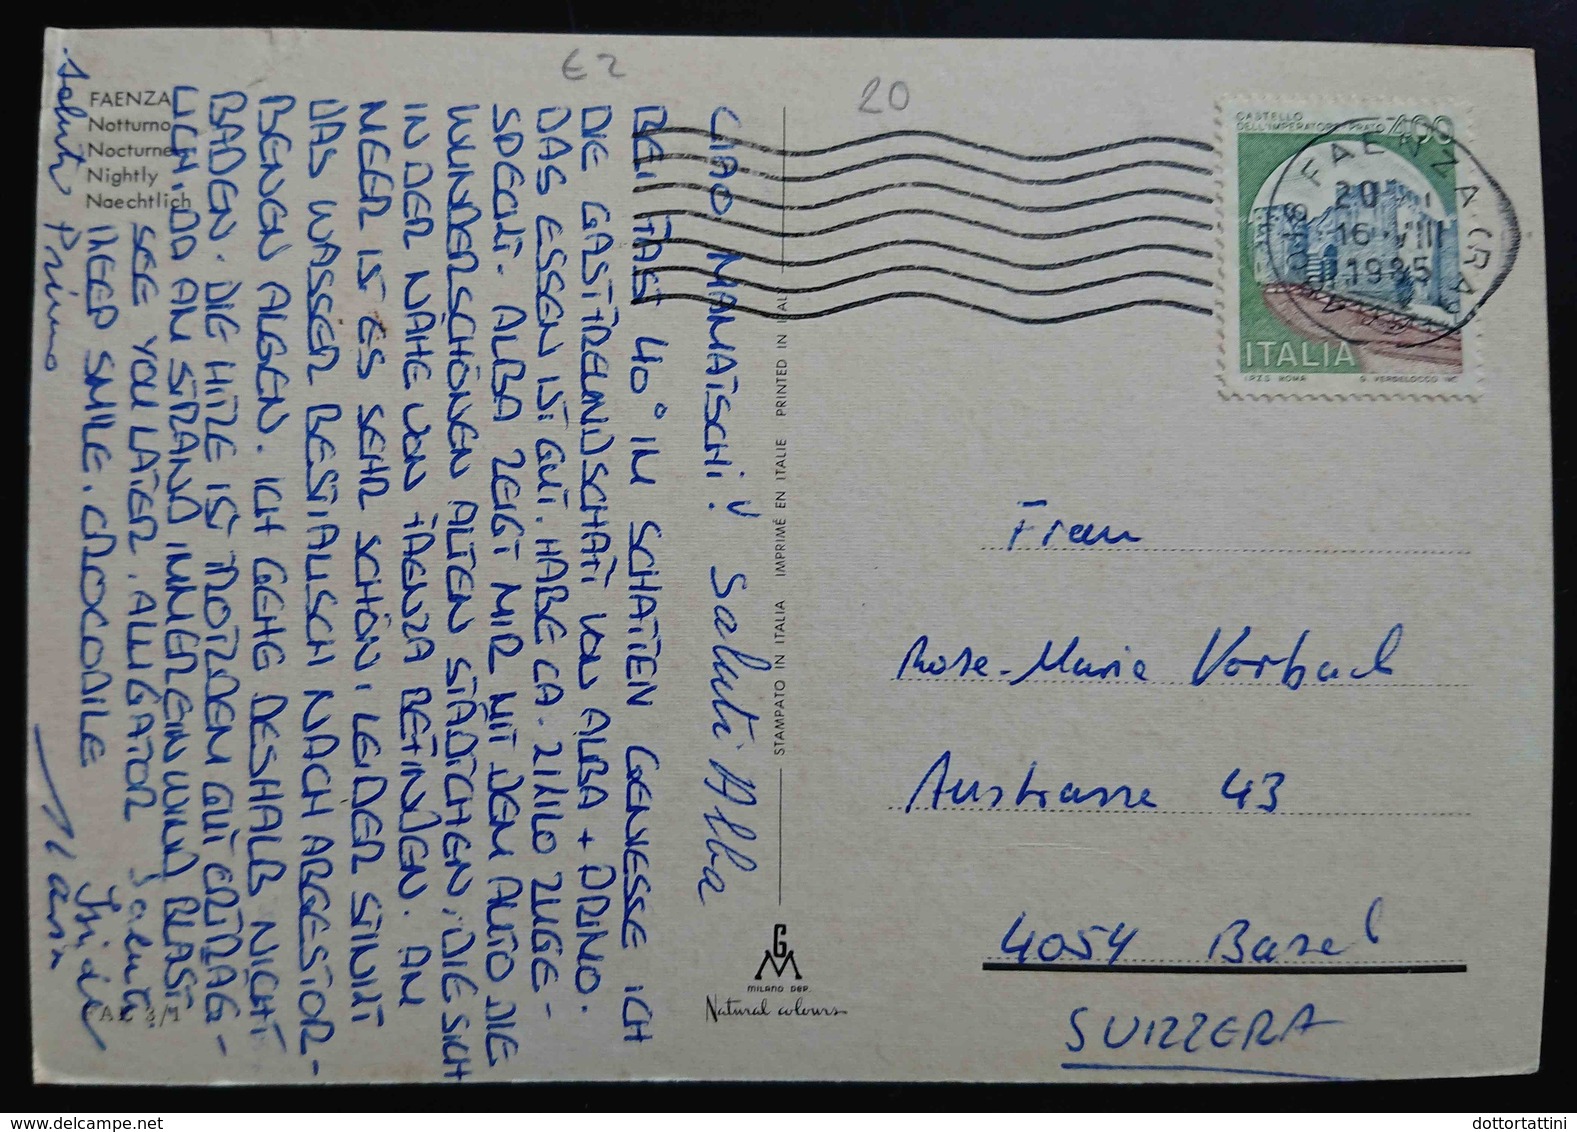 € 2
20
FAENZA
Notturno
Nocturne
Nightly
Naechtlich
CIAO MAMATSCHI!
BEI FAST 40° IM SCHATTEN GENIESSE ICH
DIE GASTFREUNDSCHAFT VON ALBA + PRIMO.
DAS ESSEN IST GUT. HABE CA. 2 KILO ZUGE-
SPECKT. ALBA ZEIGT MIR MIT DEM AUTO DIE
WUNDERSCHÖNEN ALTEN STÄDTCHEN, DIE SICH
IN DER NÄHE VON FAENZA BEFINDEN. AM
MEER IST ES SEHR SCHÖN, LEIDER STINKT
DAS WASSER BESTIALISCH NACH ABGESTOR-
BENEN ALGEN. ICH GEHE DESHALB NICHT
BADEN. DIE HITZE IST TROTZDEM GUT ERTRÄG-
LICH, DA AM STRAND IMMER EIN WIND BLÄST
SEE YOU LATER, ALLIGATOR
KEEP SMILE, CROCODILE
Saluti Alba
Saluti
saluti Primo
Maria
3/1
STAMPATO IN ITALIA IMPRIMÉ EN ITALIE PRINTED IN ITALY
GM
MILANO DEP.
Natural colours
CASTELLO
DELL'IMPERATORE PRATO 400
ITALIA
I.P.Z.S. ROMA G. VERDELOCCO INC.
FAENZA (RA)
20
16 VIII
1985
Frau
Rose-Marie Vorbach
Austrasse 43
4054 Basel
SVIZZERA
dottortattini